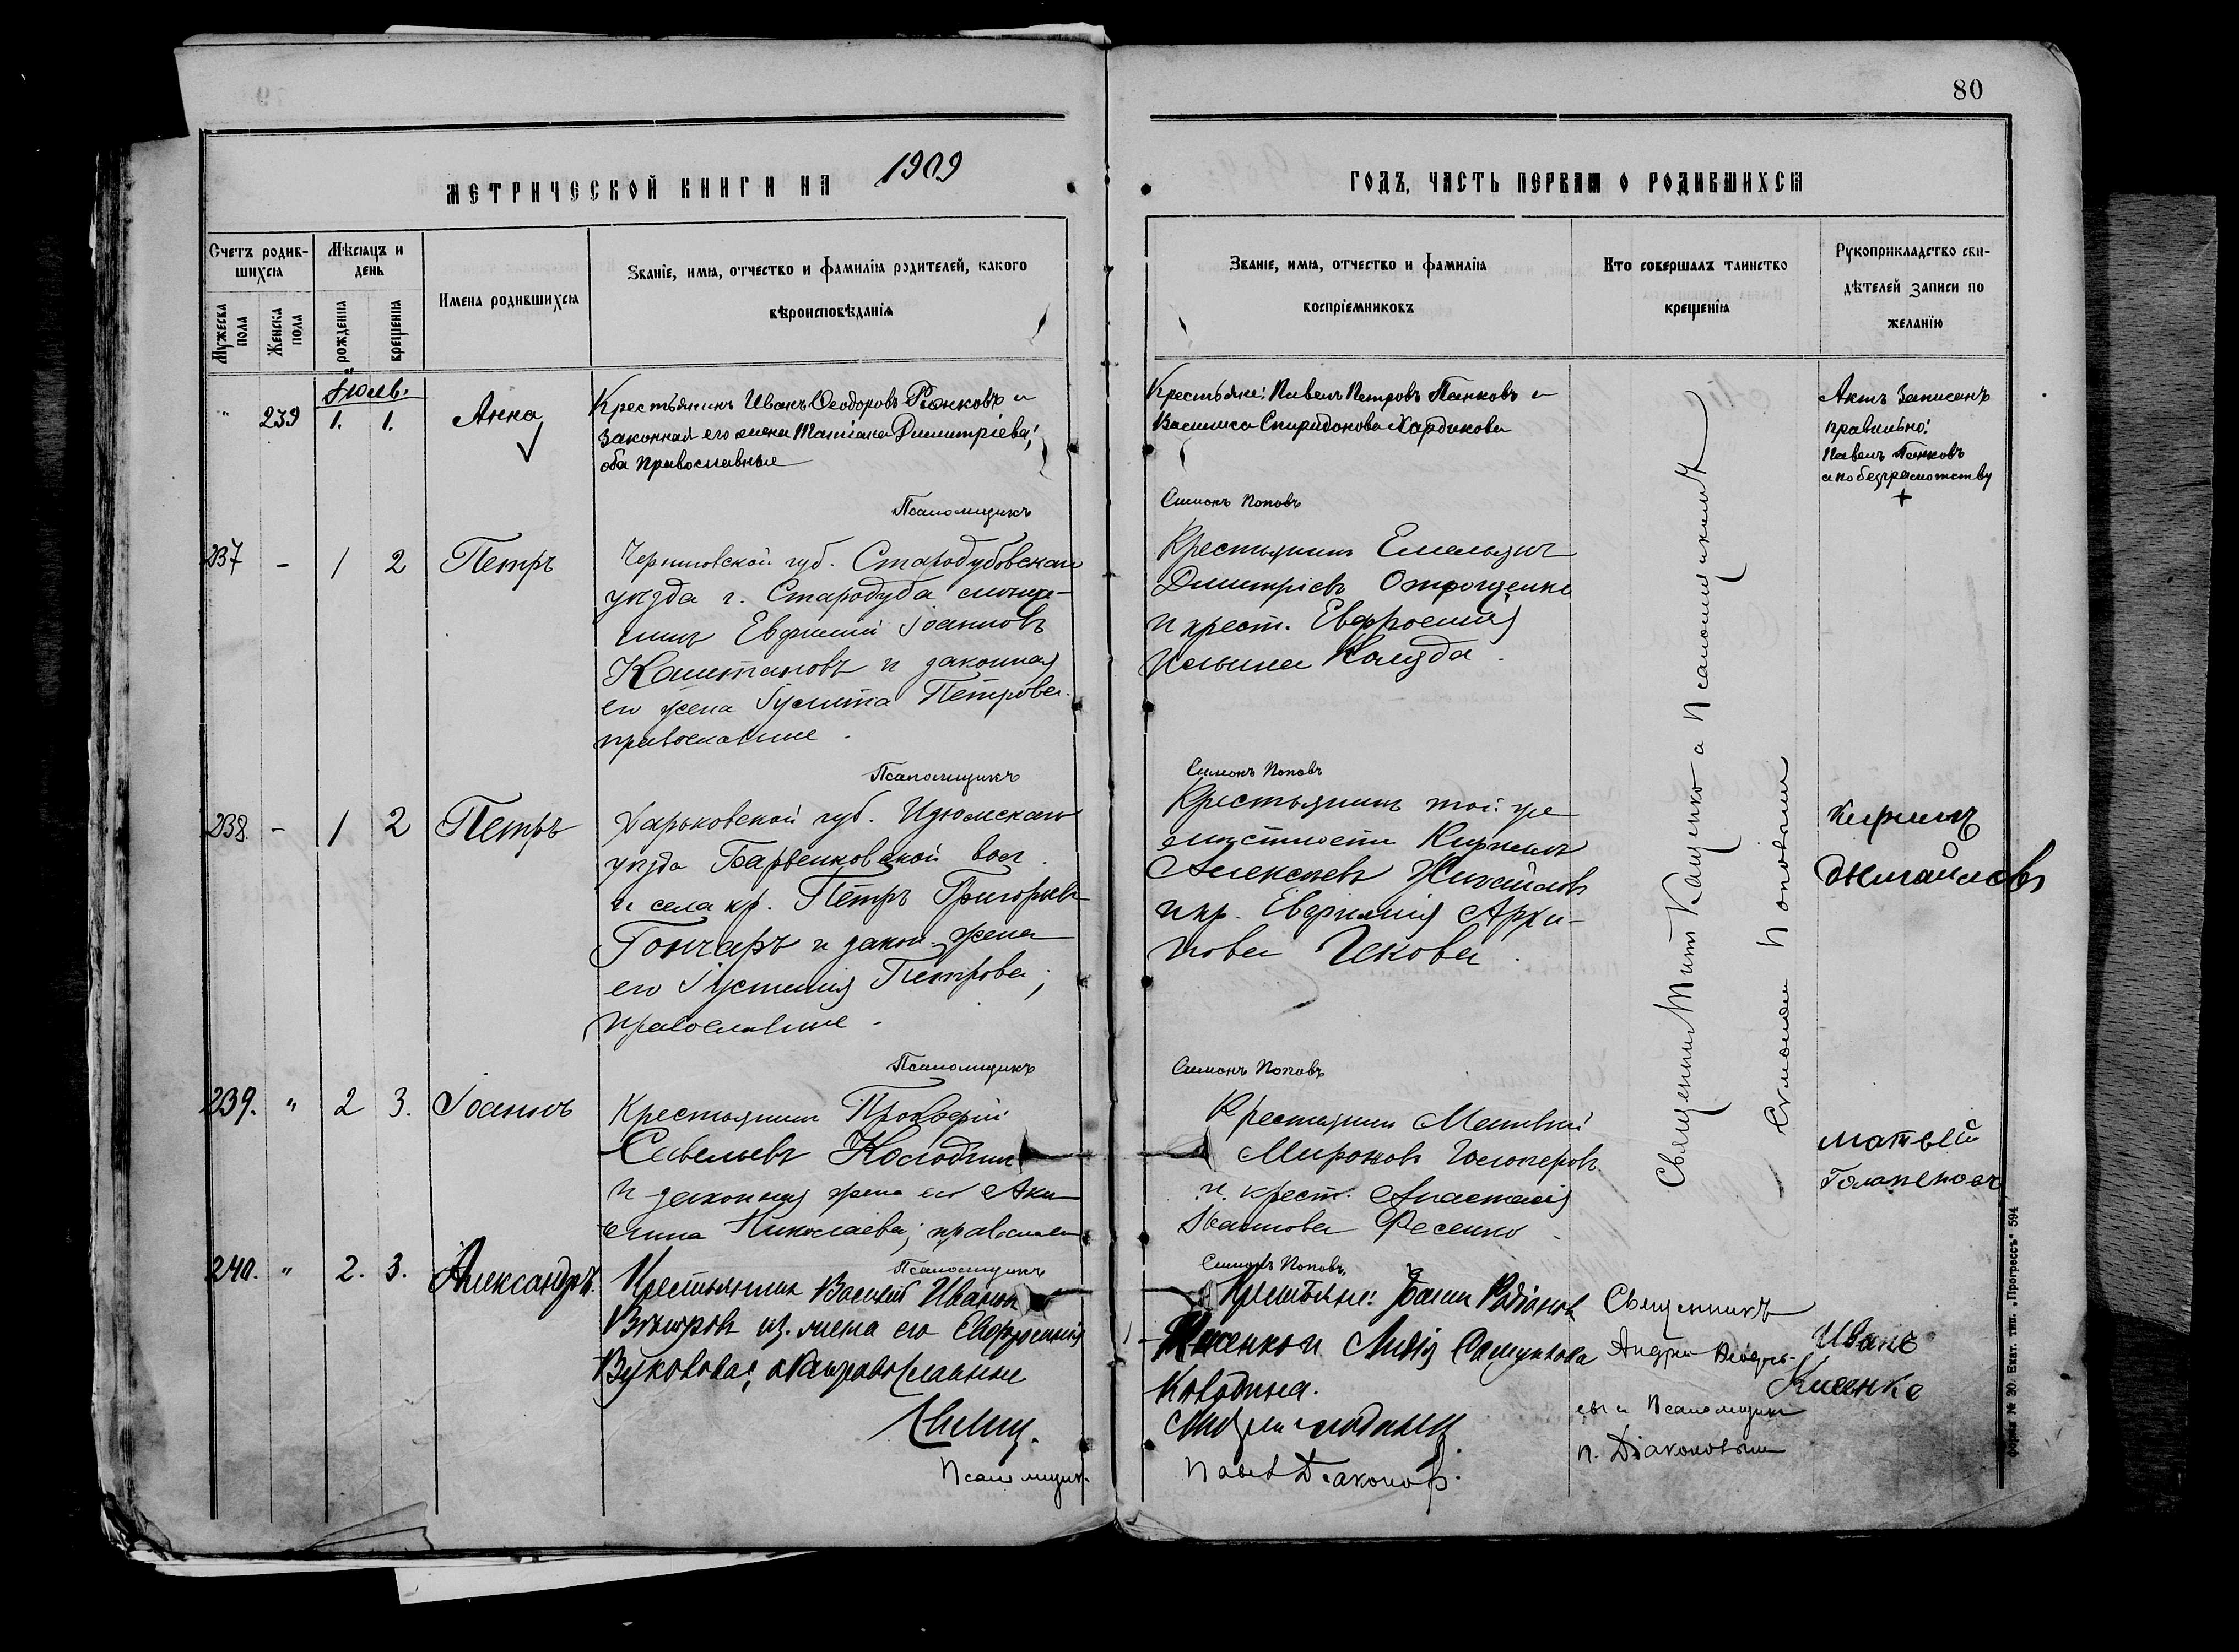 80
МЕТРИЧЕСКОЙ КНИГИ НА 1909
ГОДЪ, ЧАСТЬ ПЕРВАЯ О РОДИВШИХСЯ
Счетъ родив-
шихся
Мужеска пола
Женска пола
Мѣсяцъ и
день
рожденія
крещенія
Имена родившихся
Званіе, имя, отчество и фамилія родителей, какого
вѣроисповѣданія
Званіе, имя, отчество и фамилія
воспріемниковъ
Кто совершалъ таинство
крещенія
Рукоприкладство сви-
дѣтелей записи по
желанію
Іюль.
" 239 1. 1. Анна
Крестьянинъ Иванъ Ѳеодоровъ и
законная его жена Татіана Димитріева;
оба православные
Крестьяне: Павелъ Петровъ Панковъ и
Василиса Спиридонова Хардикова
Актъ записанъ
правильно:
Павелъ Панковъ
а по безграмотству
+
Псаломщикъ
Симонъ Поповъ
237 - 1 2 Петръ
Черниговской губ. Стародубовскаго
уѣзда г. Стародуба мѣща-
нинъ Евфимій Іоанновъ
Каштановъ и законная
его жена Петрова
православные.
Крестьянинъ Емельянъ
Димитріевъ Отрощенко
и крест. Евфросинія
Ильина Калуда.
Псаломщикъ
Симонъ Поповъ
238. - 1 2 Петръ
Харьковской губ. Изюмскаго
уѣзда Барвенковской вол.
и села кр. Петръ Григорьевъ
Гончаръ и закон. жена
его Іустинія Петрова;
православные.
Крестьянинъ той же
мѣстности Кириллъ
Алексѣевъ Жигайловъ
и кр. Евфимія Архи-
пова Чекова.
Кирилъ
Жигайловъ
Псаломщикъ
Симонъ Поповъ
239. " 2 3. Іоаннъ
Крестьянинъ Прокофій
Савельевъ Колодчин
и законная жена его Аки-
лина Николаева; православн
Крестьянинъ Матвѣй
Мироновъ
и крест. Анастасія
Иванова Фесенко
матвей
Псаломщикъ
Симонъ Поповъ.
240. " 2. 3. Александръ.
Крестьянинъ Василій Ивановъ
Вѣтровъ из. жена его Евфросинія
православные
Крестьяне: Родіоновъ
и Лидія
Священникъ
Андрей
и Псаломщикъ
П. Діаконовымъ
Иванъ
Кисенко
Псаломщик.
Павелъ Діаконовъ.
Священникъ Титъ Кащенко а Псаломщикомъ
Симономъ Поповымъ
Форма № 20. Екат. тип. „Прогрессъ" 594